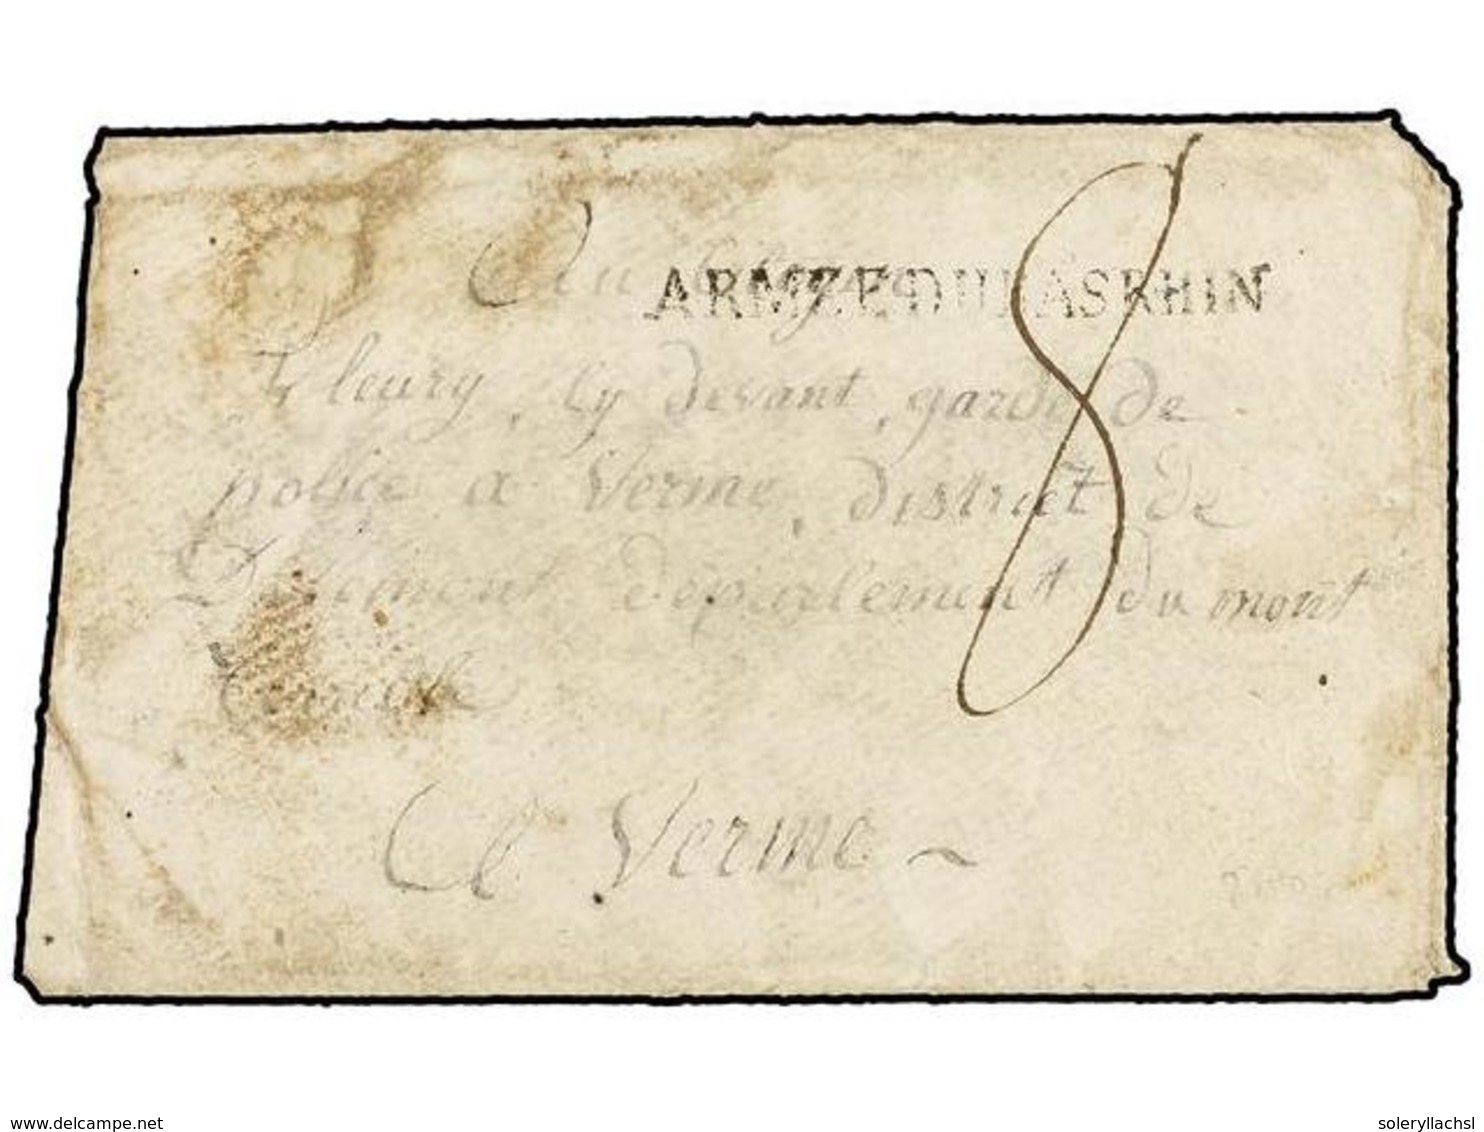 Au Citoyen
ARMÉE DU BAS RHIN
8
Fleury, Cy devant, garde de
police a Verme, district de
Delemont departement du mont
terrible
A Verme ~
delcampe.net
soleryllachsl